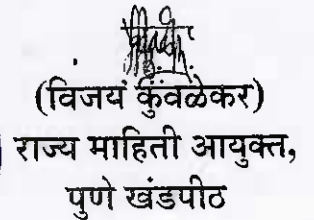 (विजयं कुंवळेकर)
राज्य माहिती आयुक्त,
पुणे खंडपीठ